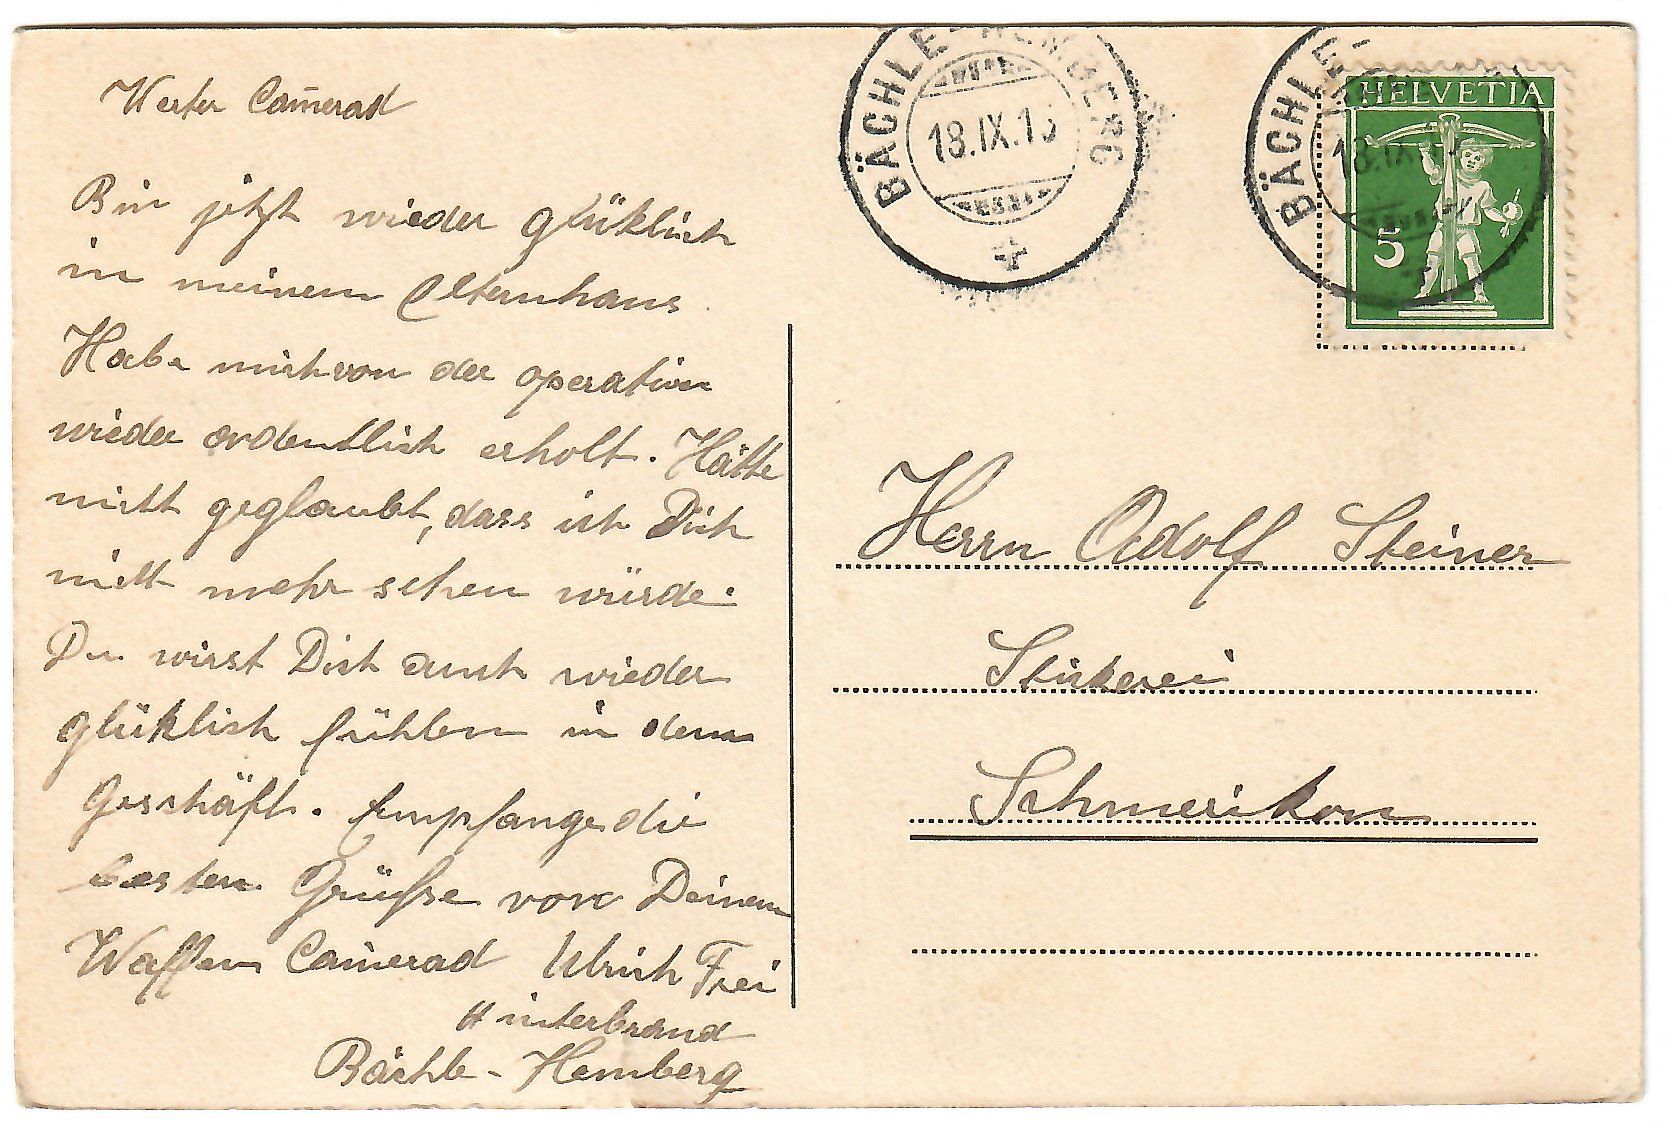 Werter Cam̄erad
Bin jetzt wieder glüklich
in meinem Elternhaus.
Habe mich von der operation
wieder ordentlich erholt. Hätte
nicht geglaubt, dass ich Dich
nicht mehr sehen würde.
Du wirst Dich auch wieder
glüklich fühlen in dem
Geschäft. Empfange die
besten Grüße von Deinem
Waffen Cam̄erad Ulrich Frei
Hinterbrand
Bächle - Hemberg
BÄCHLE-HEMBERG
18.IX.15
BÄCHLE-
18.IX.
HELVETIA
5
Herrn Adolf Steiner
Stikerei
Schmerikon